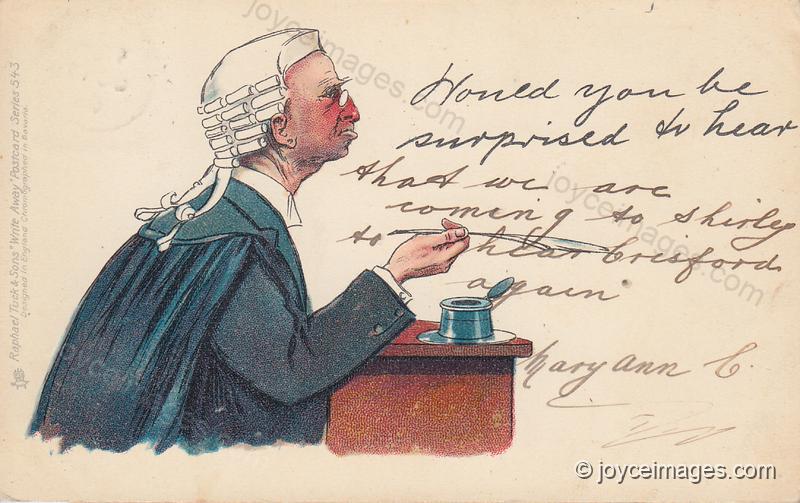 Would you be
surprised to hear
that we are
coming to Shirly
to hear Crisford
again
Mary Ann C.
Raphael Tuck & Sons' "Write Away" Postcard Series 543
Designed in England Chromographed in Bavaria
joyceimages.com
joyceimages.com
joyceimages.com
© joyceimages.com